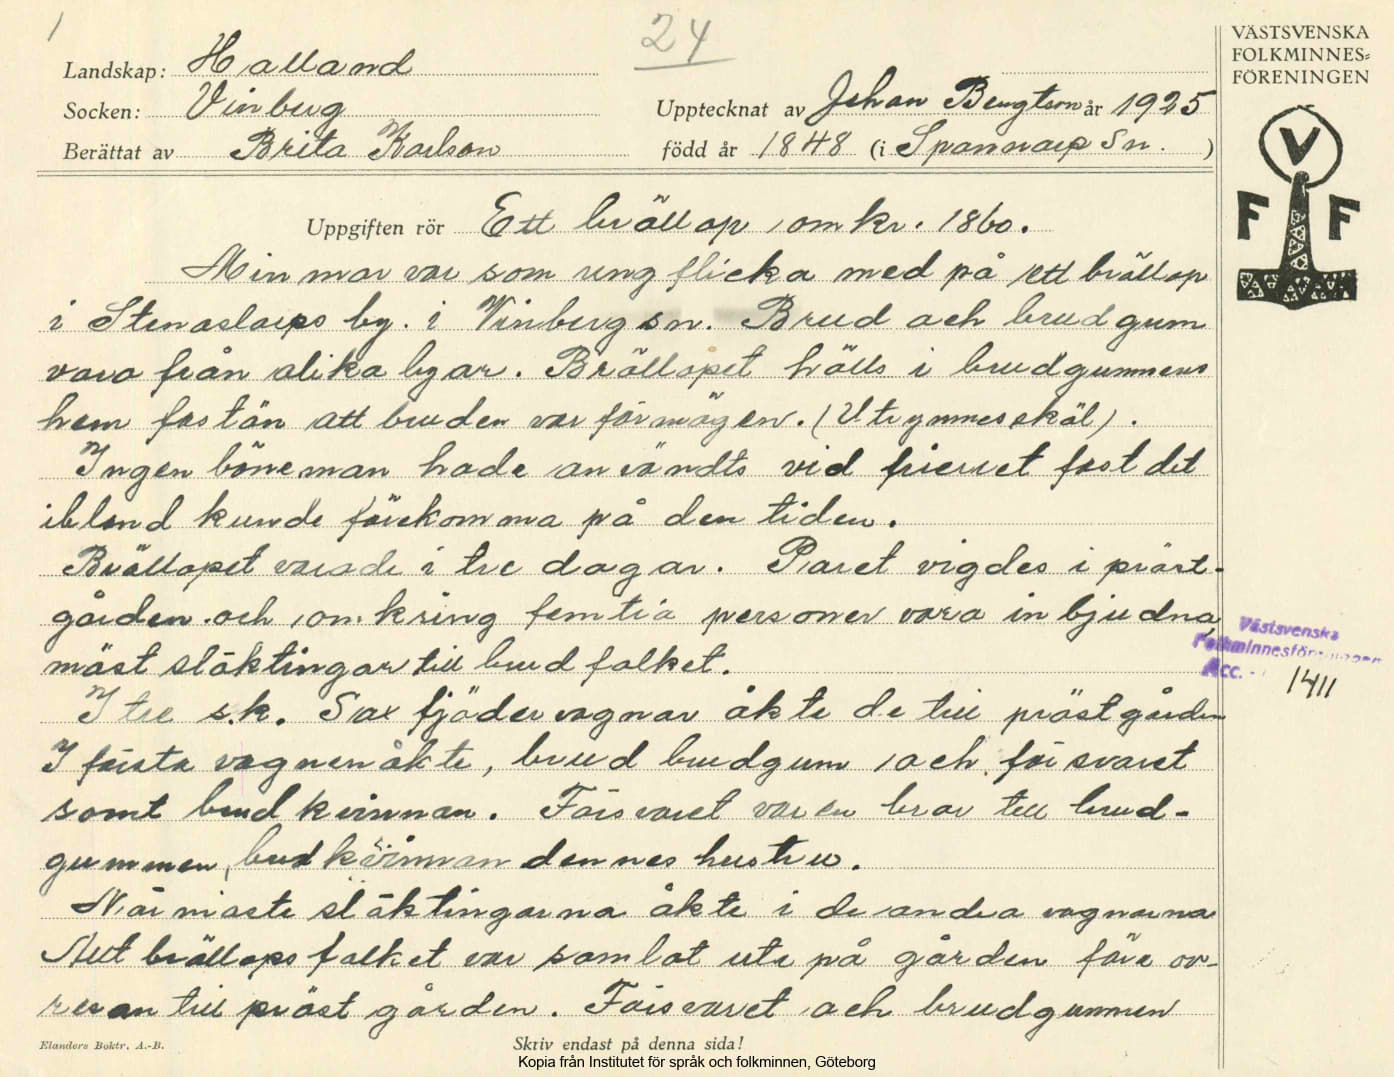 1
24
VÄSTSVENSKA
FOLKMINNES-
FÖRENINGEN
V
F F
Landskap: Halland
Socken: Vinberg
Upptecknat av Johan Bengtson år 1925
Berättat av Brita Karlson
född år 1848 (i Spannarp Sn. )
Uppgiften rör Ett bröllop omkr. 1860.
Min mor var som ung flicka med på ett bröllop
i Stenaslarps by. i Vinberg sn. Brud och brudgum
voro från olika byar. Bröllopet hölls i brudgummens
hem fastän att bruden var förmögen. (Utrymmesskäl).
Ingen böneman hade användts vid frieriet fast det
ibland kunde förekomma på den tiden.
Bröllopet varade i tre dagar. Paret vigdes i präst-
gården och omkring femtio personer voro inbjudna,
mäst släktingar till brudfolket.
I tre s.k. Sax fjädervagnar åkte de till prästgården
I första vagnen åkte, brud brudgum och försvaret
samt brudkvinnan. Försvaret var en bror till brud-
gummen, brudkvinnan dennes hustru.
Närmaste släktingarna åkte i de andra vagnarna
Allt bröllopsfolket var samlat ute på gården före av-
resan till prästgården. Försvaret och brudgummen
Västsvenska
Folkminnesföreningen
Acc. - 1411
Elanders Boktr. A.-B.
Skriv endast på denna sida!
Kopia från Institutet för språk och folkminnen, Göteborg